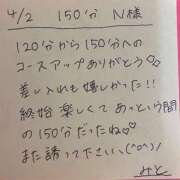 4/2 150分 N様
120分から150分への
コースアップありがとう♡
差し入れも嬉しかった!!
終始楽しくてあっという間
の150分だったね♡
また誘ってください、(^o^)/
みと